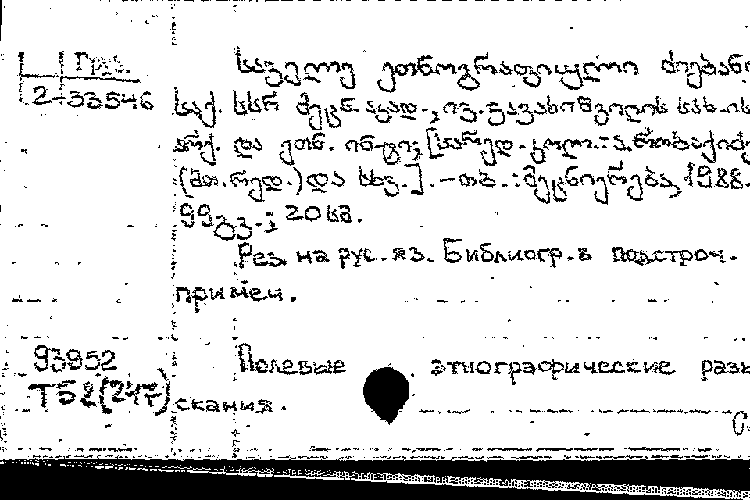 Груз.
საველე ეთნოგრაფიული ძიებანი
2-33546 საქ. სსრ მეცნ. აკად., ივ. ჯავახიშვილის სახ. ის
არქ. და ეთნ. ინ-ტი; [სარედ. კოლ.: ა. რობაქიძე
(მთ. რედ.) და სხვ.]. -თბ.: მეცნიერება, 1988.
99 გვ.; 20 სმ.
Рез. на рус. яз. Библиогр. в подстроч.
примеч.
93952 Полевые этнографические разы
Т52(247) скания.